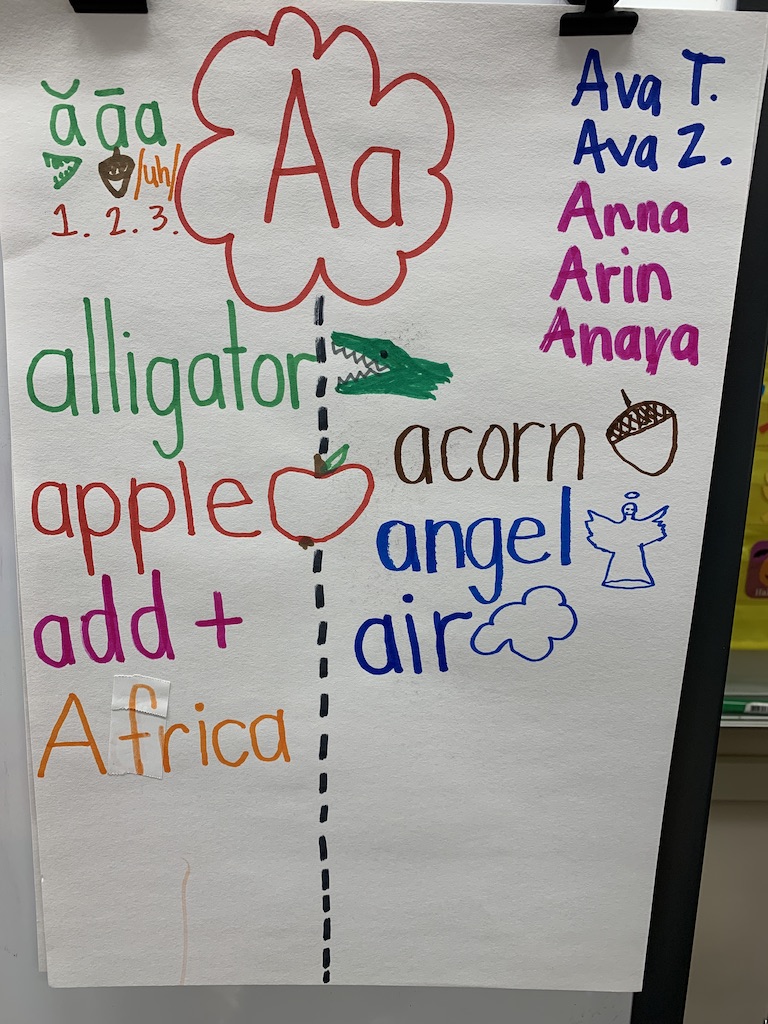 ă ā a
/uh/
1. 2. 3.
Aa
Ava T.
Ava Z.
Anna
Arin
Anaya
alligator
apple
add +
Africa
acorn
angel
air